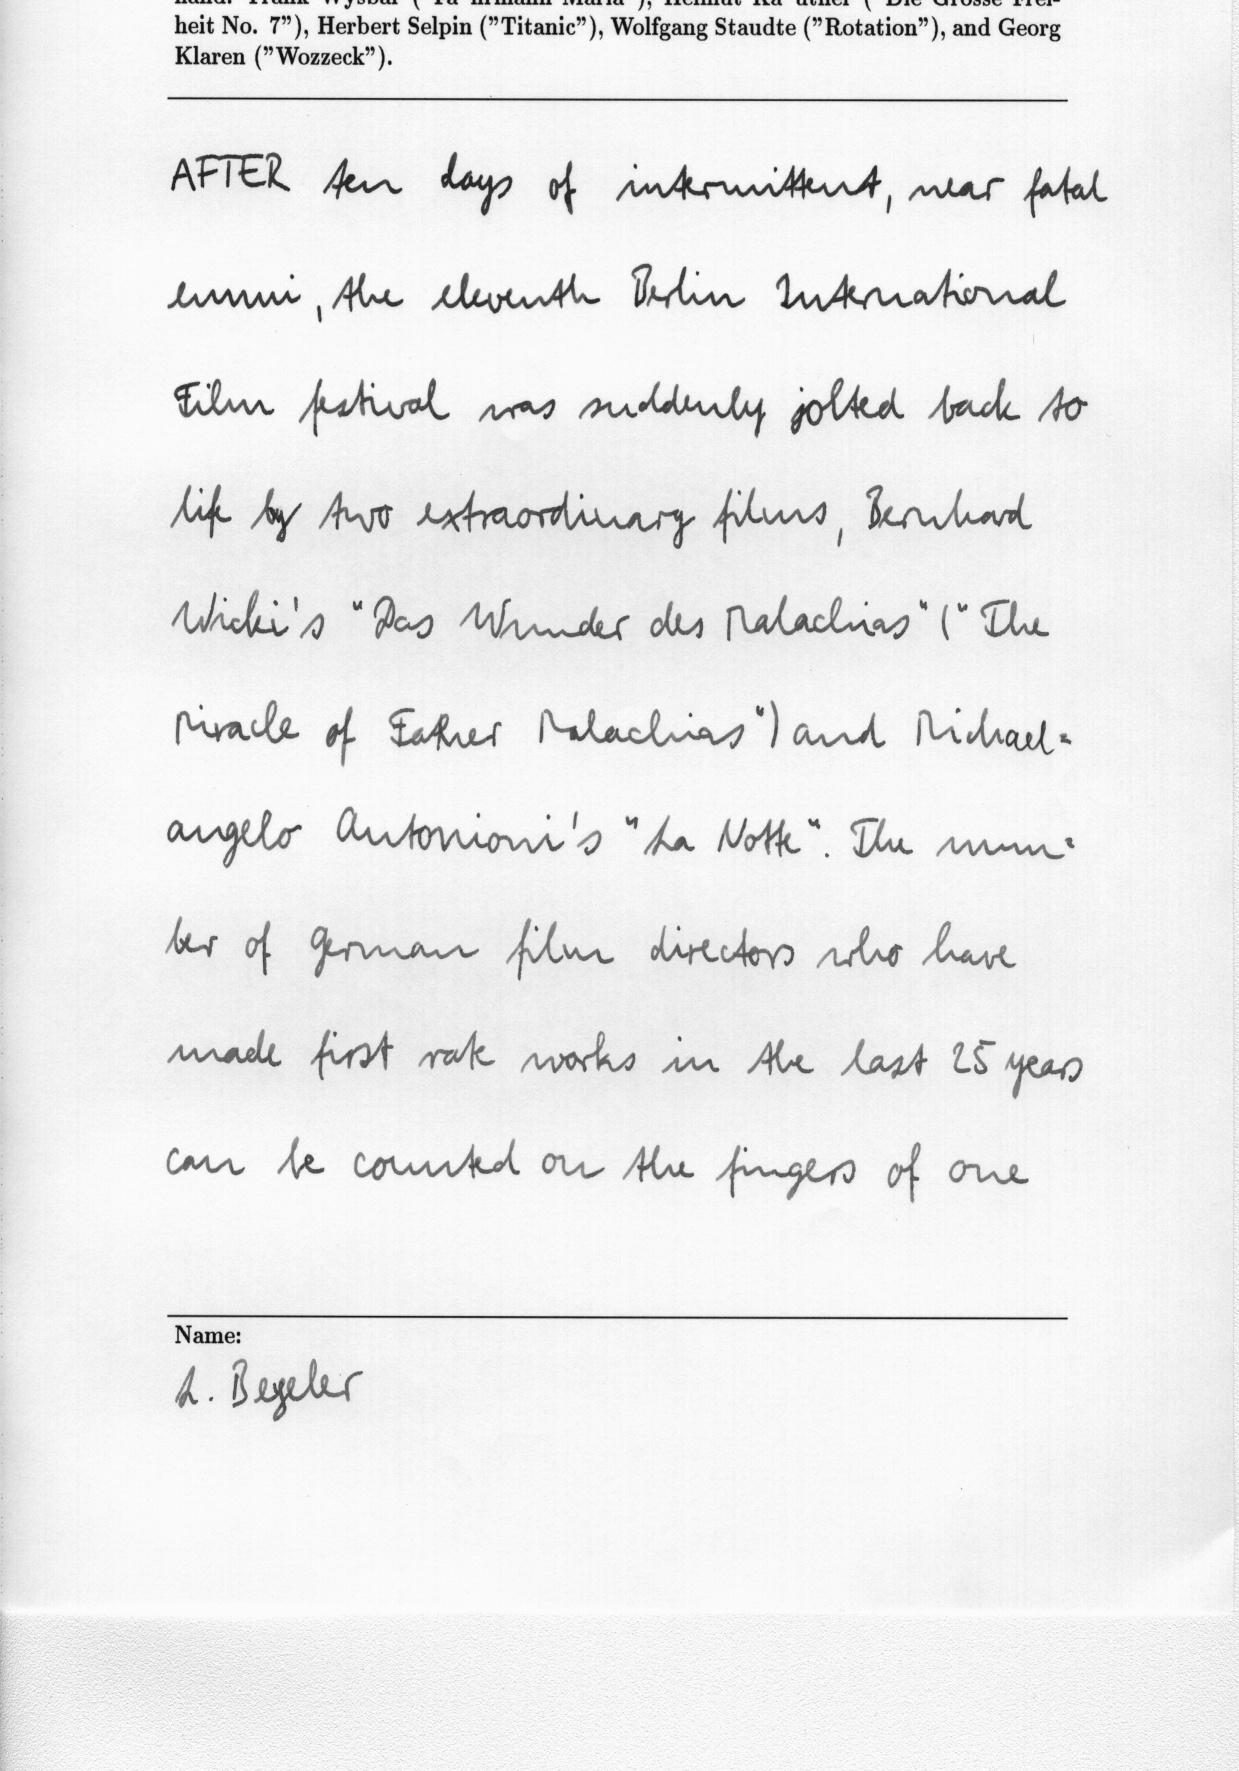 hand: Frank Wysbar ("Fa hrmann Maria"), Helmut Ka utner ("Die Grosse Frei-
heit No. 7"), Herbert Selpin ("Titanic"), Wolfgang Staudte ("Rotation"), and Georg
Klaren ("Wozzeck").
AFTER ten days of intermittent, near fatal
ennui, the eleventh Berlin International
Film festival was suddenly jolted back to
life by two extraordinary films, Bernhard
Wicki's "Das Wunder des Malachias" ("The
Miracle of Father Malachias") and Michael=
angelo Antonioni's "La Notte". The num=
ber of German film directors who have
made first rate works in the last 25 years
can be counted on the fingers of one
Name:
L. Begeler